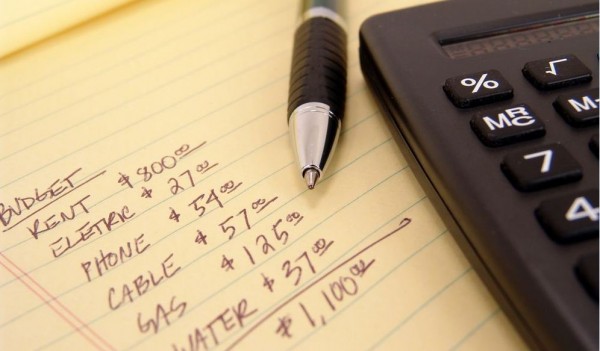 BUDGET
RENT $800.00
ELETRIC $27.00
PHONE $54.00
CABLE $57.00
GAS $125.00
WATER $37.00
$1,100.00
%
√
MRC
M-
7
4